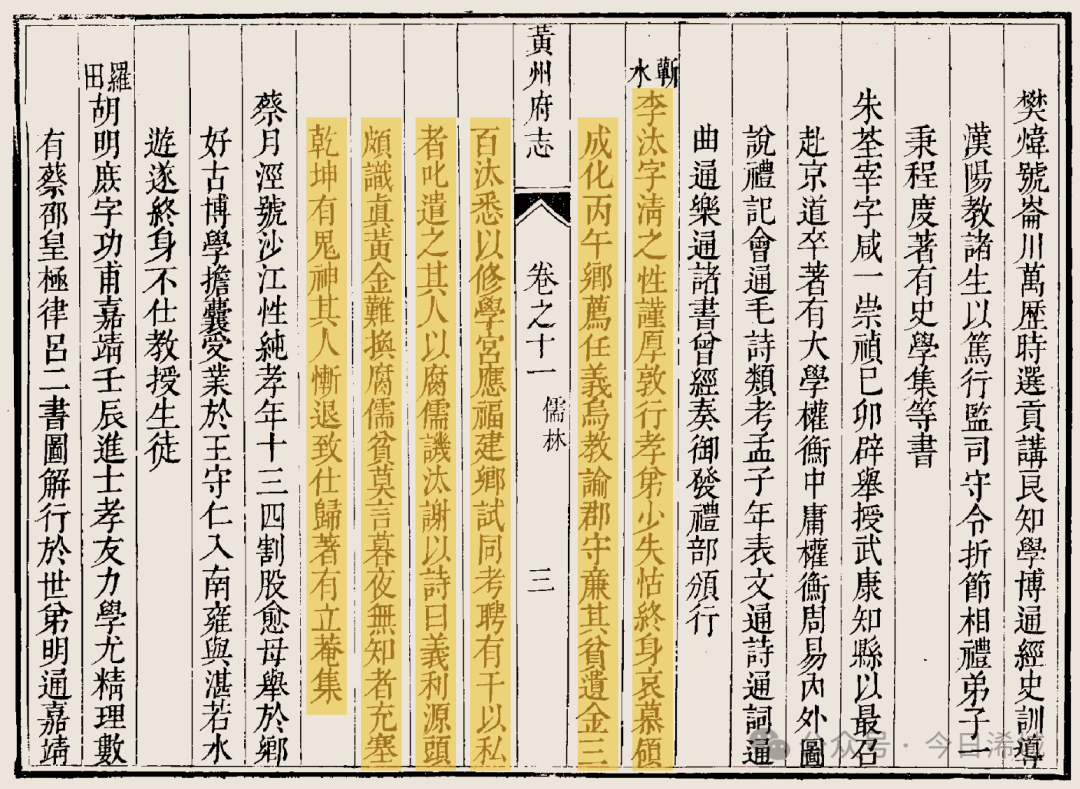 樊煒號崙川萬歷時選貢講良知學博通經史訓導
漢陽教諸生以篤行監司守令折節相禮弟子一
秉程度著有史學集等書
朱荃宰字咸一崇禎己卯辟舉授武康知縣以最召
赴京道卒著有大學權衡中庸權衡周易內外圖
說禮記會通毛詩類考孟子年表文通詩通詞通
曲通樂通諸書曾經奏御發禮部頒行
蘄水
李汰字清之性謹厚敦行孝弟少失怙終身哀慕領
成化丙午鄉薦任義烏教諭郡守亷其貧遺金三
黃州府志
卷之十一
儒林
三
百汰悉以修學宮應福建鄉試同考聘有干以私
者叱遣之其人以腐儒譏汰謝以詩曰義利源頭
頗識真黃金難換腐儒貧莫言暮夜無知者充塞
乾坤有鬼神其人慚退致仕歸著有立菴集
蔡月涇號沙江性純孝年十三四割股愈母舉於鄉
好古博學擔囊受業於王守仁入南雍與湛若水
遊遂終身不仕教授生徒
羅田
胡明庶字功甫嘉靖壬辰進士孝友力學尤精理數
有蔡邵皇極律呂二書圖解行於世弟明通嘉靖
公众号·今日浠水